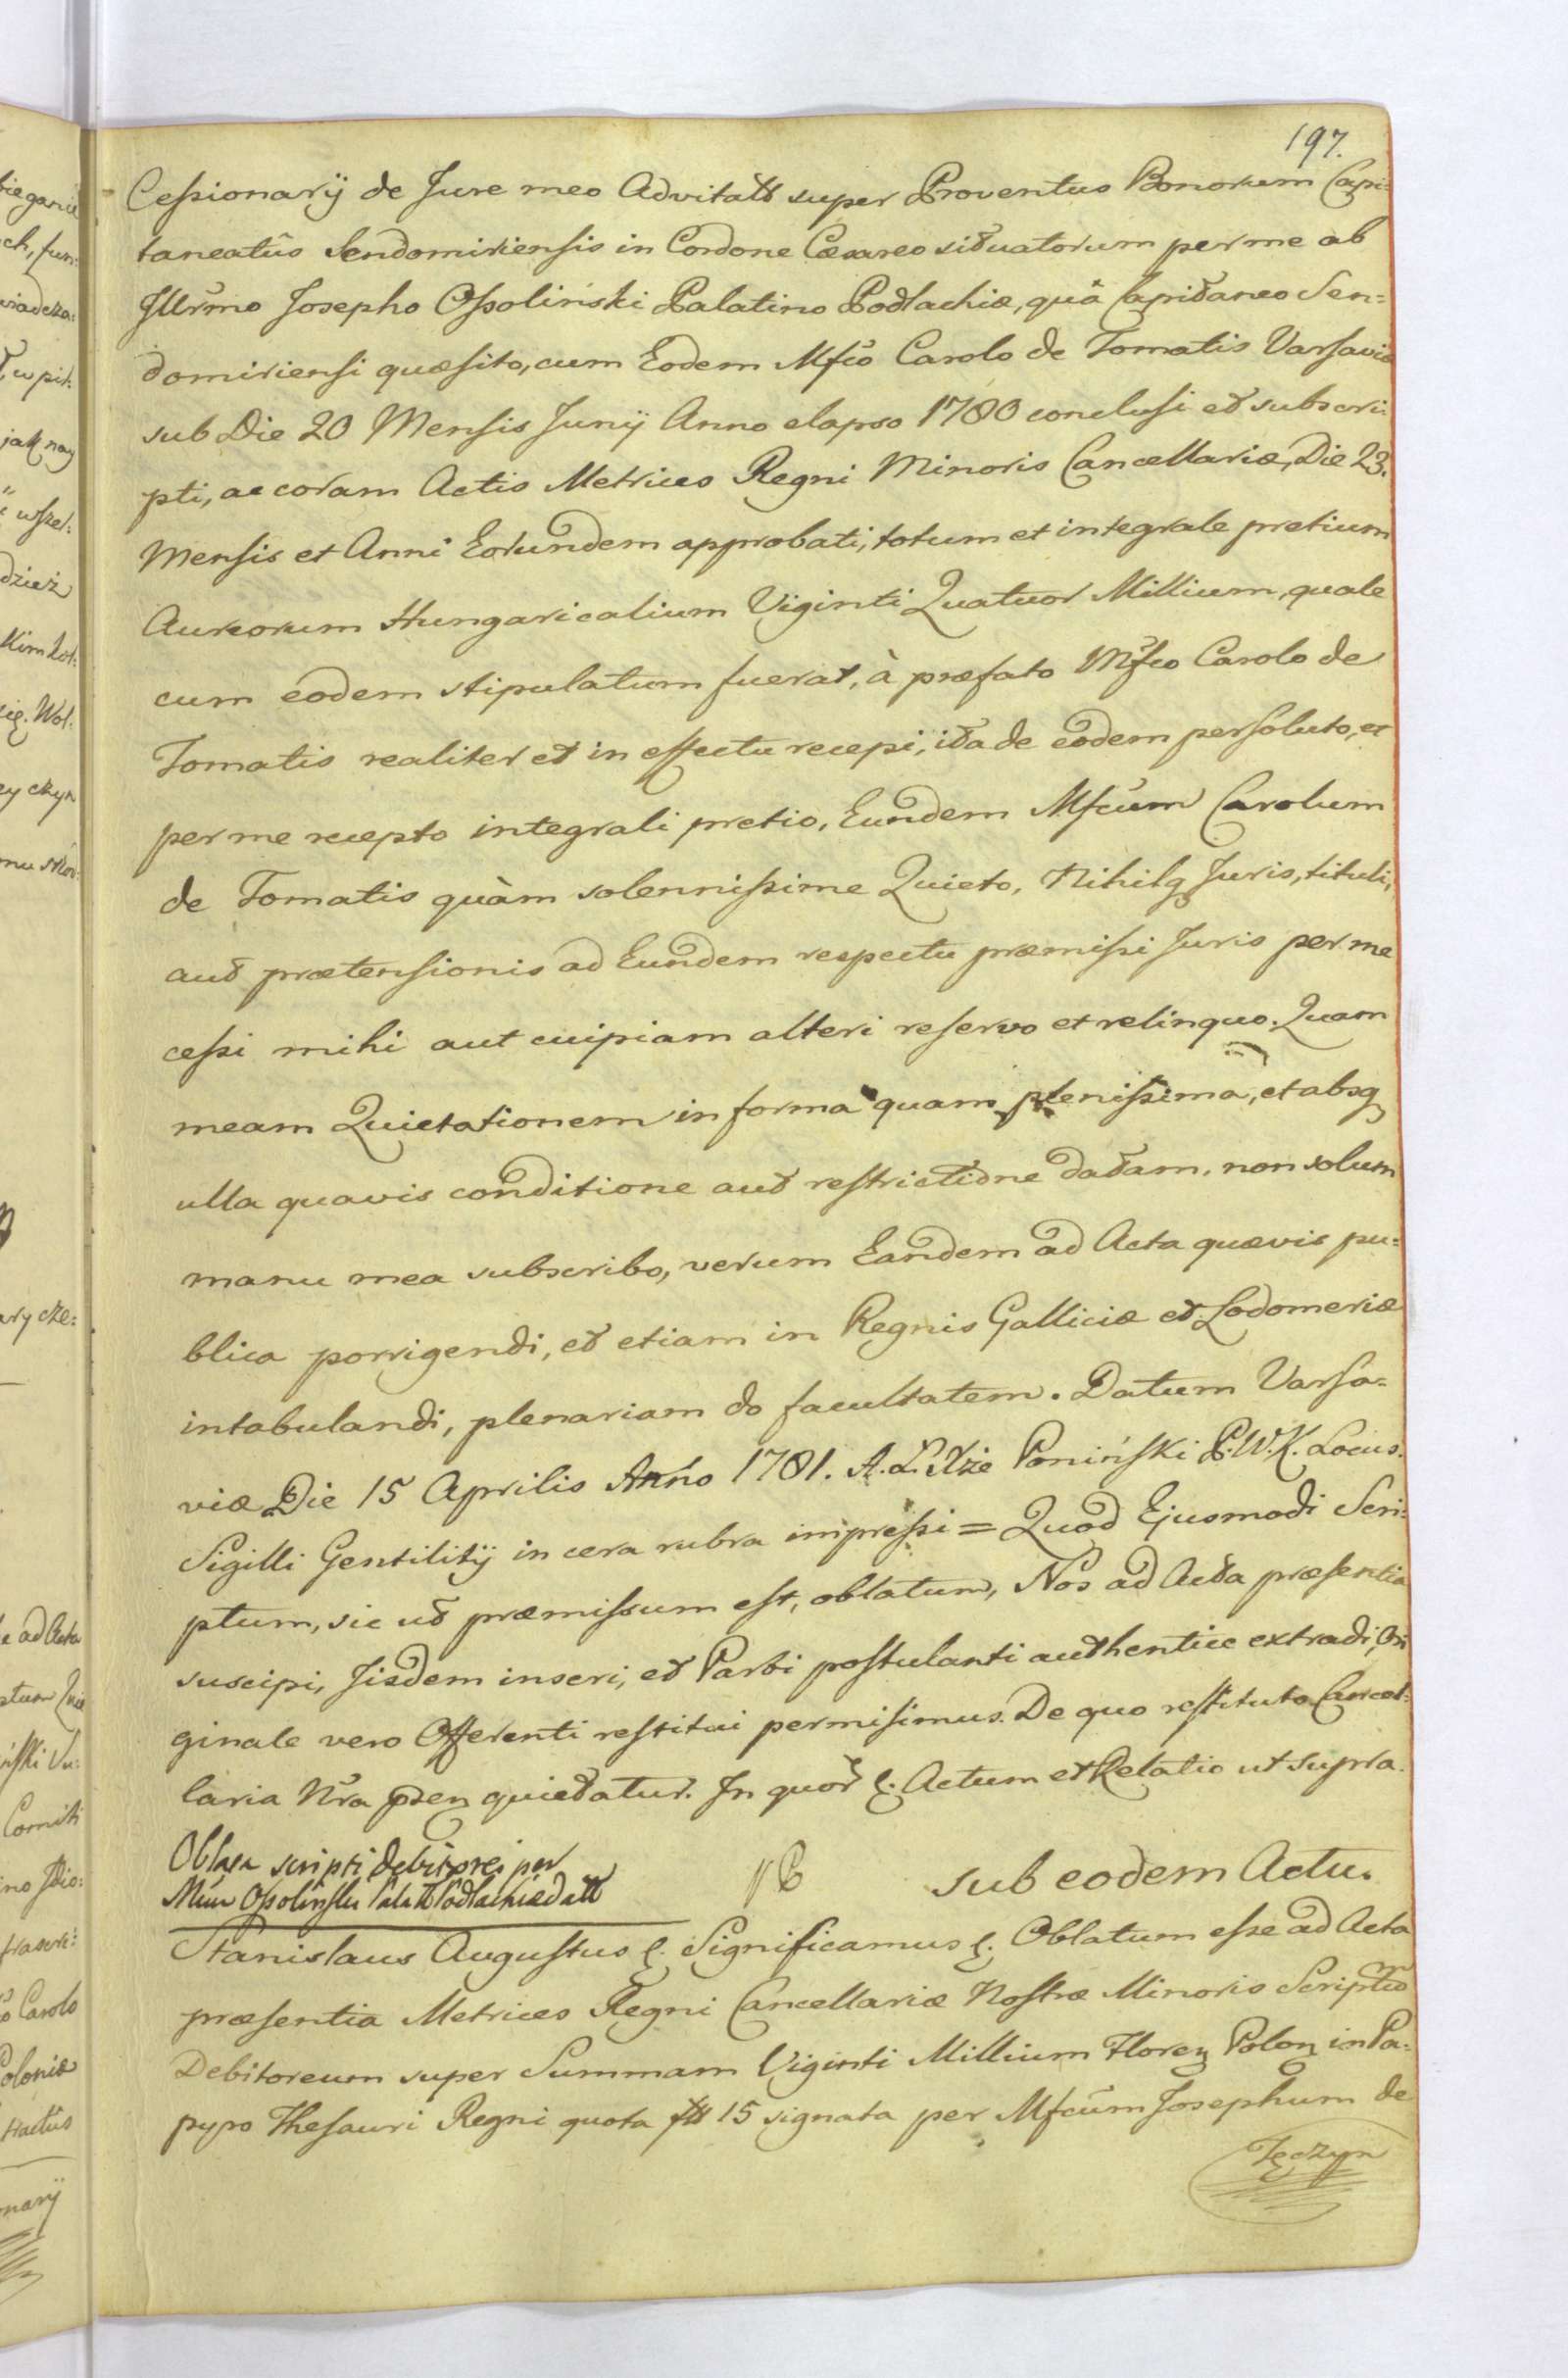 197.
Cessionarij de Jure meo Advitattt super Proventus Bonorum Capi=
taneatûs Sendomiriensis in Cordone Cæsareo situatorum per me ab
Jllrmo Josepho Ossoliński Palatino Podlachiæ, quâ Capitaneo Sen=
domiriensi quæsito, cum Eodem Mfco Carolo de Tomatis Varsaviæ
sub Die 20 Mensis Junij Anno elapso 1780 conclusi et subscri=
pti, ac coram Actis Metrices Regni Minoris Cancellariæ, Die 23.
Mensis et Anni Eorundem approbati, totum et integrale pretium
Aureorum Hungaricalium Viginti Quatuor Millium, quale
cum eodem stipulatum fuerat, à præfato Mfco Carolo de
Tomatis realiter et in effectu recepi, ita de eodem persoluto, et
per me recepto integrali pretio, Eundem Mfcum Carolum
de Tomatis quàm solennissime Quieto, Nihilq Juris, tituli,
aut prætensionis ad Eundem respectu præmissi Juris per me
cessi mihi aut cuipiam alteri reservo et relinquo. Quam
meam Quietationem in forma quam plenissima, et absq
ulla quavis conditione aut restrictione datam, non solum
manu mea subscribo, verum Eandem ad Acta quævis pu=
blica porrigendi, et etiam in Regnis Galliciæ et Lodomeriæ
intabulandi, plenariam do facultatem. Datum Varsa=
viæ Die 15 Aprilis Anno 1781. A. L. Xże Poniński P.W.K. Locus.
Sigilli Gentilitij in cera rubra impressi = Quod Ejusmodi Scri=
ptum, sic ut præmissum est, oblatum, Nos ad Acta præsentia
suscipi, Jisdem inseri, et Parti postulanti authentice extradi, Ori
ginale vero Offerenti restitui permisimus. De quo restituto Cancel=
laria Nra pden quietatur. In quor &. Actum et Relatio ut supra.
Oblata scripti debitorei per
Mcum Ossoliński Palat Podlachiæ datt
sub eodem Actu.
Stanislaus Augustus &. Significamus &. Oblatum esse ad Acta
præsentia Metrices Regni Cancellariæ Nostræ Minoris Scriptum
Debitoreum super Summam Viginti Millium Floren Polon in Pa=
pyro Thesauri Regni quota fltt 15 signata per Mfcum Josephum de
Tęczyn